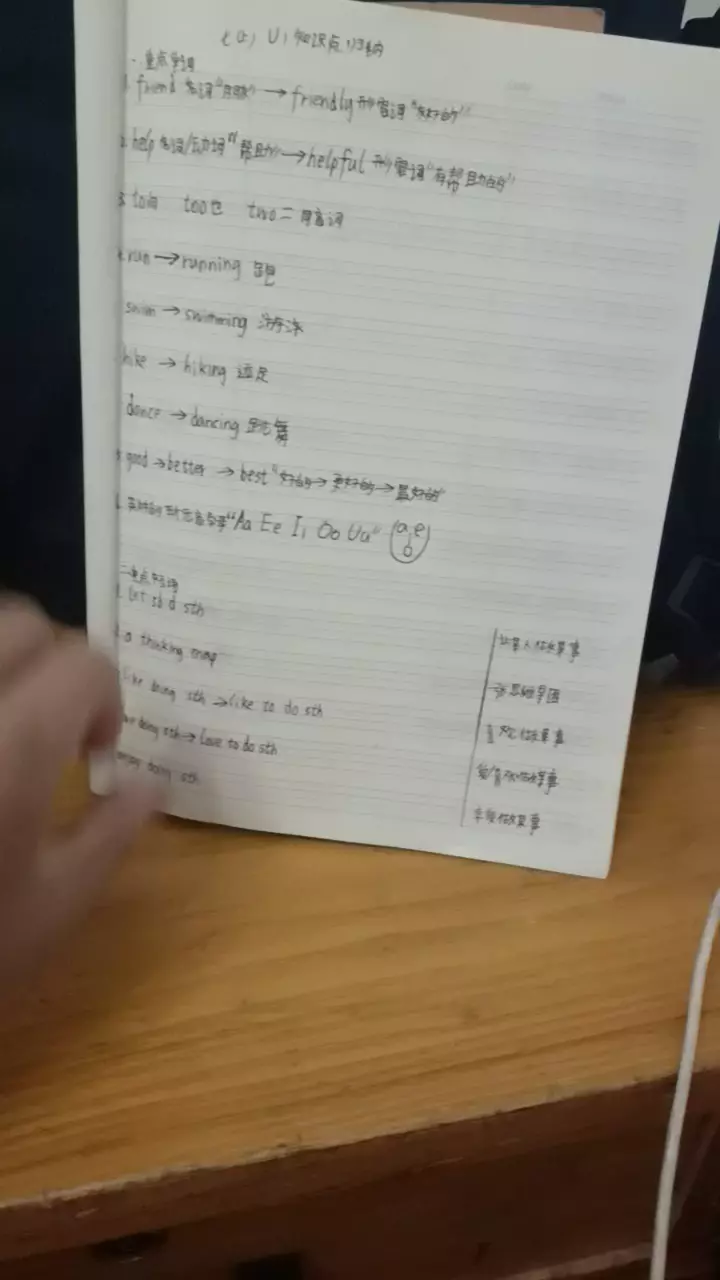 U1 知识点归纳
一.重点单词
1. friend 名词"朋友"→friendly 形容词"友好的"
2. help 名词/动词"帮助"→helpful 形容词"有帮助的"
3. to向 too也 two二 同音词
4. run→running 跑
swim→swimming 游泳
hike→hiking 远足
dance→dancing 跳舞
5. good→better→best"好的→更好的→最好的"
6. 元音字母"Aa Ee Ii Oo Uu"
二.重点短语
1. let sb d sth 让某人做某事
2. a thinking map 思维导图
like doing sth→like to do sth 喜欢做某事
doing sth→love to do sth 做某事
enjoy doing sth 做某事